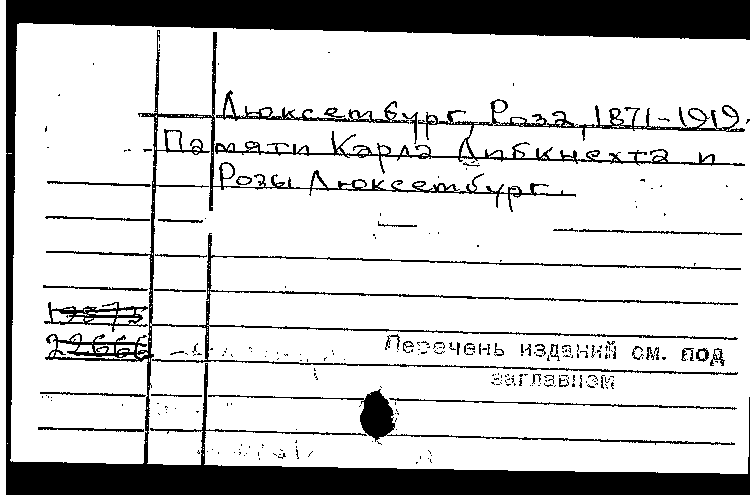 Люксембург, Роза, 1871-1919.
Памяти Карла Либкнехта и
Розы Люксембург.
22666
Перечень изданий см. под
заглавием